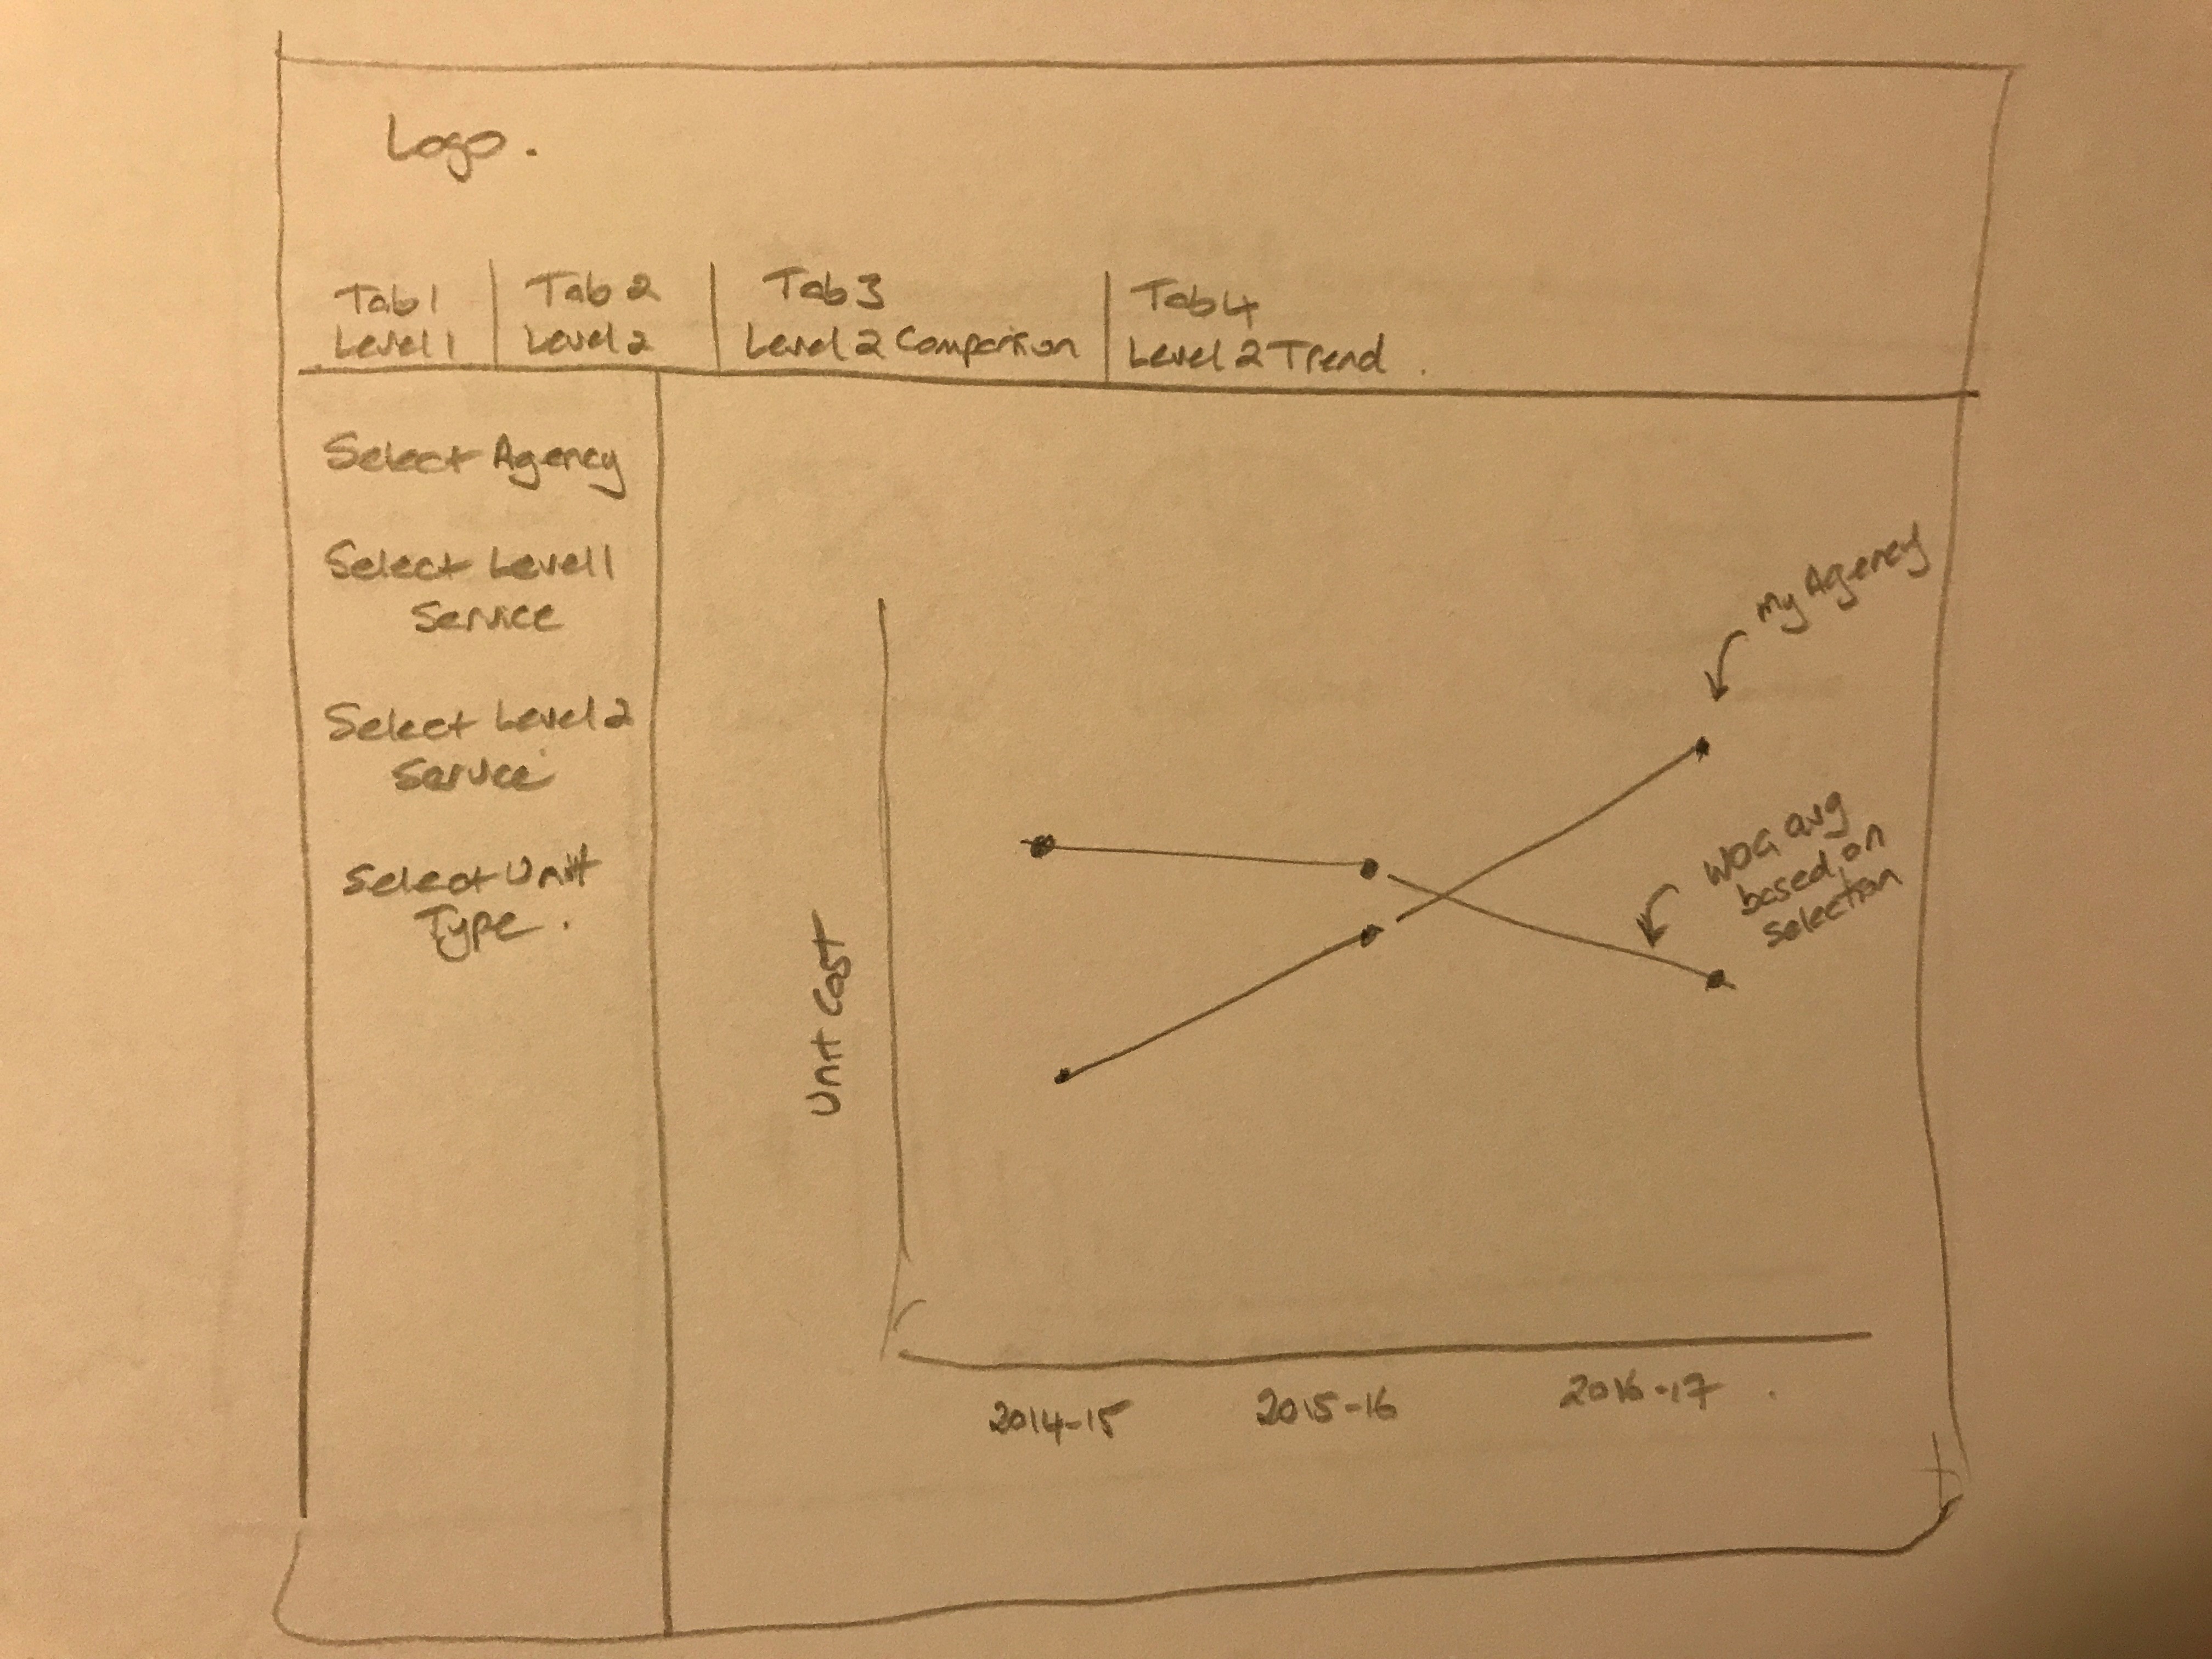 Logo.
Tab 1
Level 1
Tab 2
Level 2
Tab 3
Level 2 Comparison
Tab 4
Level 2 Trend.
Select Agency
Select Level 1
Service
Select Level 2
Service
Select Unit
Type.
Unit Cost
my Agency
WOG avg
based on
selection
2014-15
2015-16
2016-17.